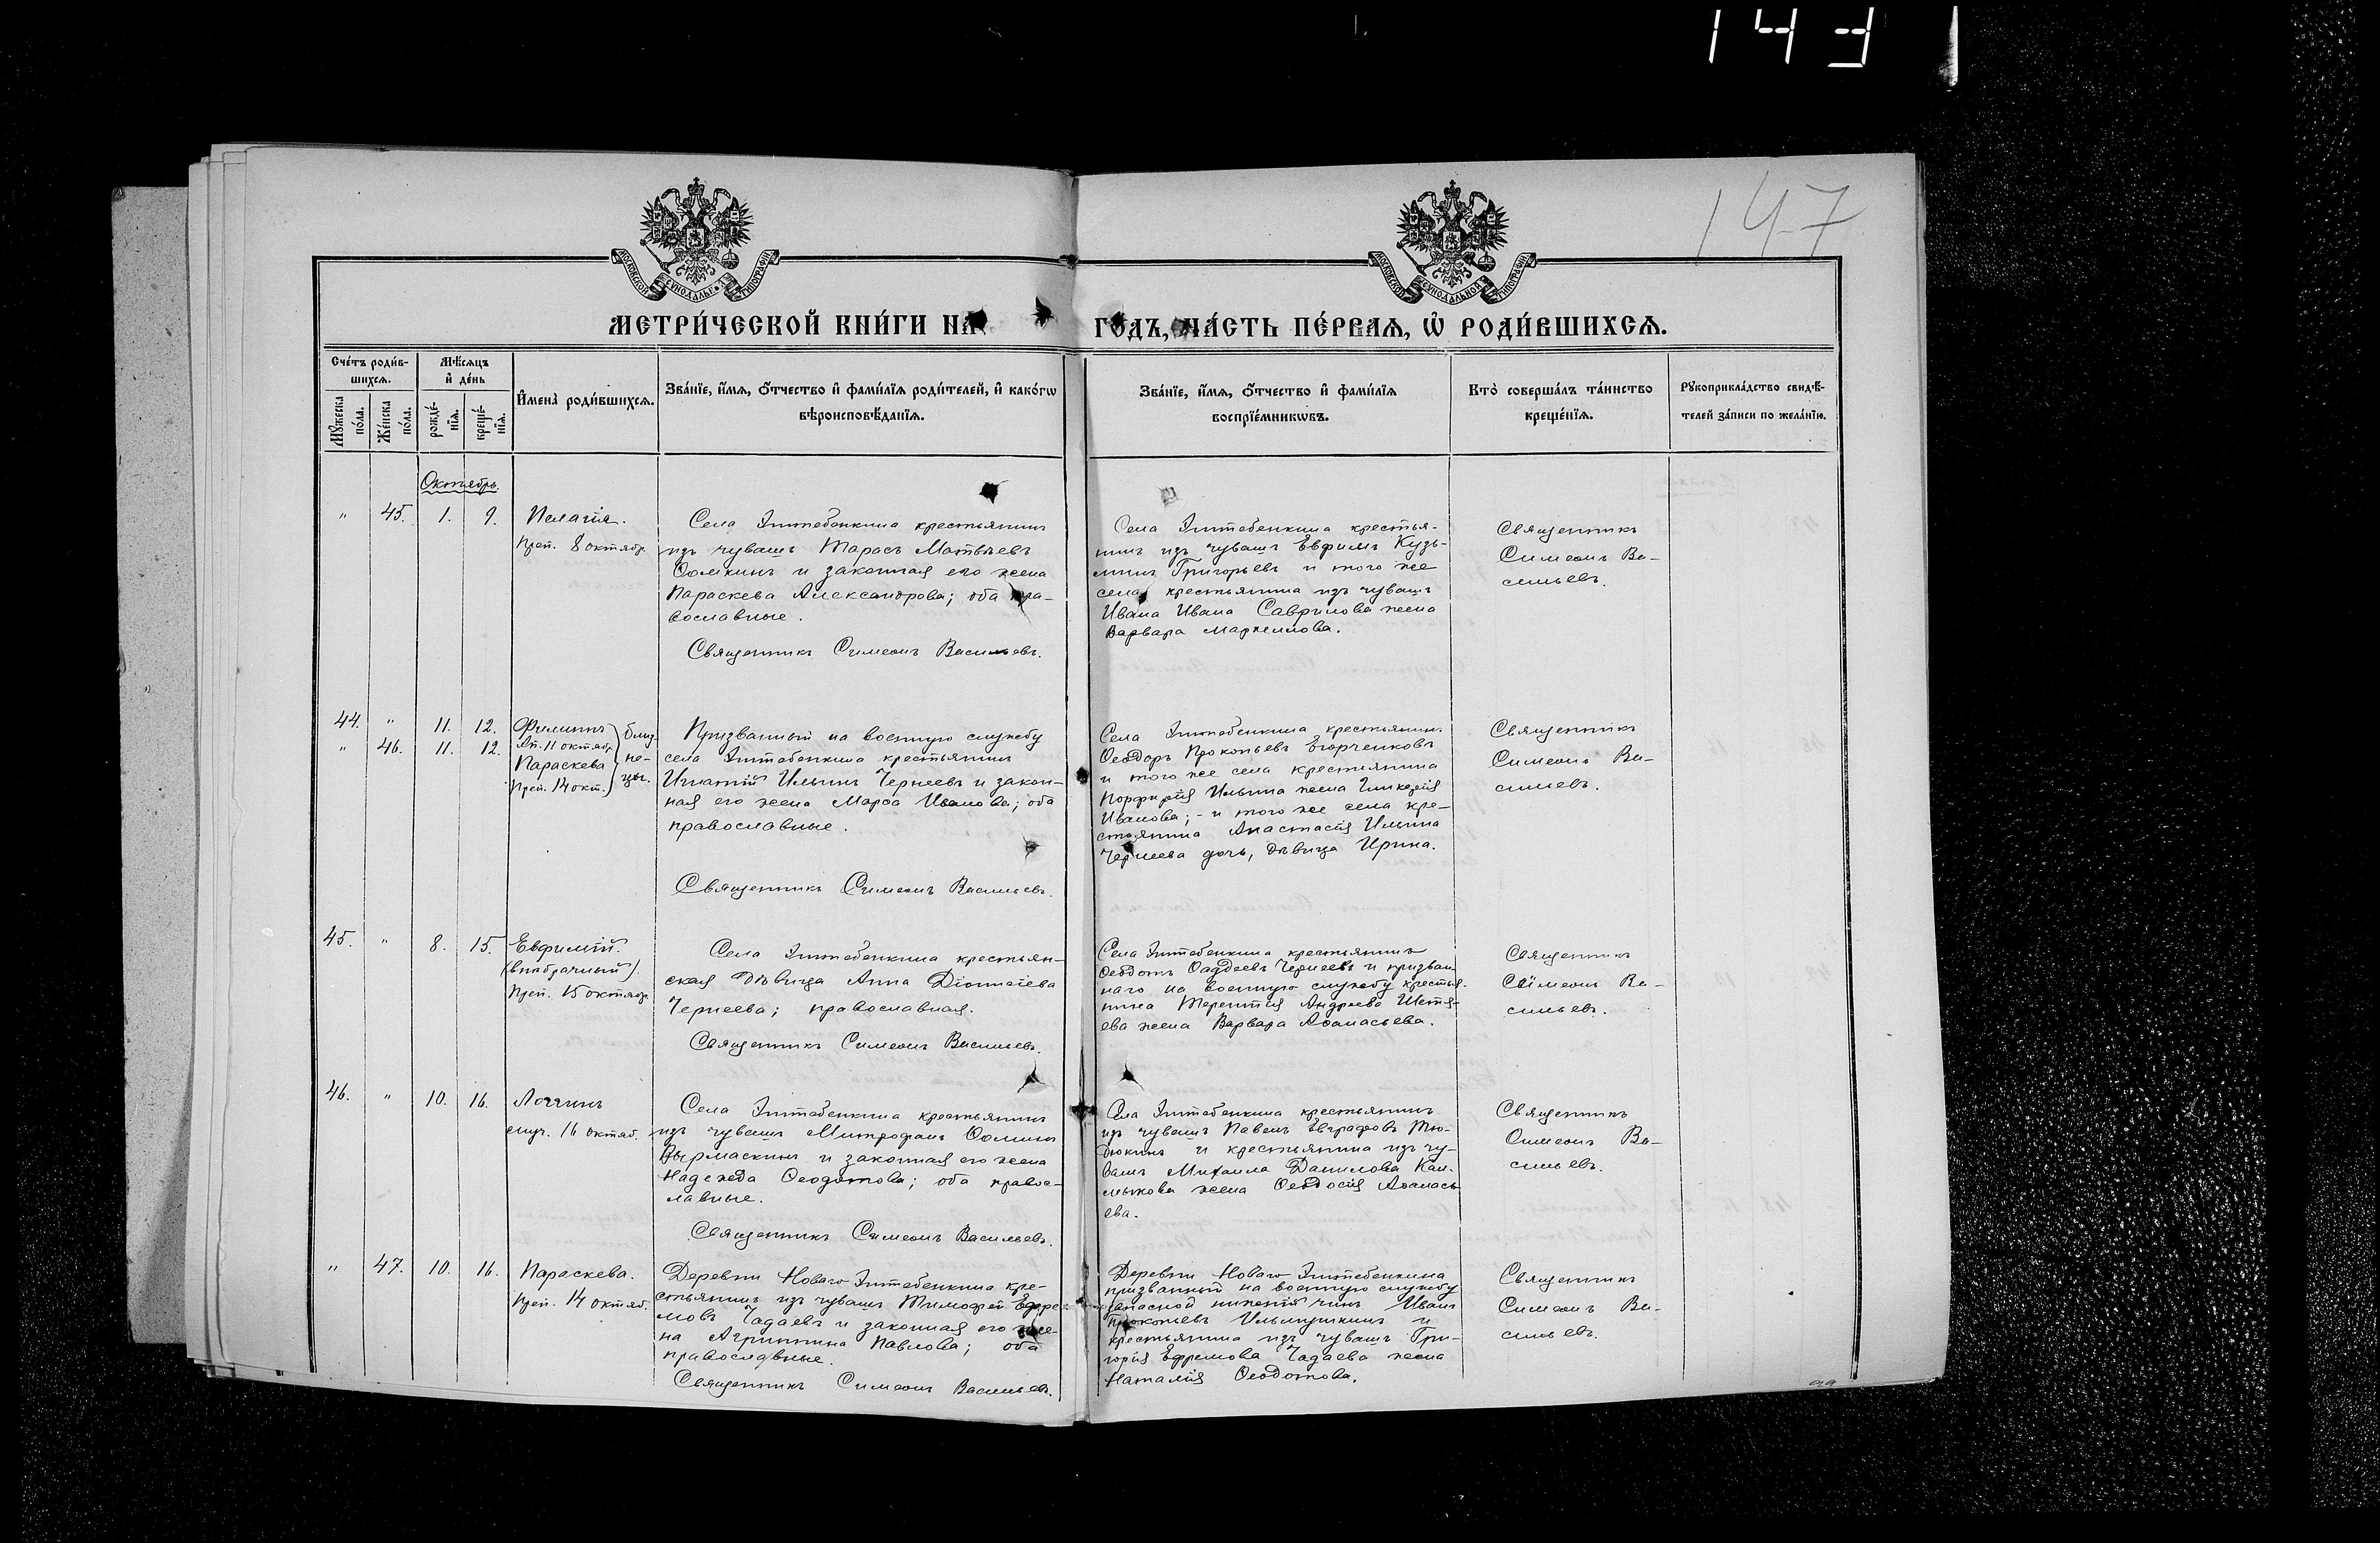 143
147
МЕТРИ́ЧЕСКОЙ КНИ́ГИ НА ГОДЪ, ЧА́СТЬ ПЕ́РВАѦ, Ѽ РОДИ́ВШИХСѦ.
Сче́тъ роди́в-
шихсѧ.
Мѣ́сѧцъ
и де́нь
Мꙋ́жеска
по́ла.
Же́нска
по́ла.
рожде́-
нїѧ.
креще́-
нїѧ.
Имена̀ роди́вшихсѧ.
Зва́нїе, и́мѧ, ѻ́тчество и фами́лїѧ роди́телей, и како́гѡ
вѣроисповѣ́данїѧ.
Зва́нїе, и́мѧ, ѻ́тчество и фами́лїѧ
воспрїе́мникѡвъ.
Кто̀ соверша́лъ та́инство
креще́нїѧ.
Рꙋкоприкла́дство свидѣ́-
телей за́писи по жела́нїю.
Октябрь.
" 45. 1. 9. Пелагія.
Преп. 8 октябр.
Села Зиттебенкина крестьянинъ
изъ чувашъ Тарасъ Матвѣевъ
Ѳомкинъ и законная его жена
Параскева Александрова; оба пра-
вославные.
Священникъ Симеонъ Васильевъ.
Села Зиттебенкина крестья-
нинъ изъ чувашъ Евфимъ Кузь-
минъ Григорьевъ и того же
села крестьянина изъ чувашъ
Ивана Ивана Саврилова жена
Варвара Маркеллова.
Священникъ
Симеонъ Ва-
сильевъ.
44. " 11. 12. Филиппъ
Ап. 11 октябр.
" 46. 11. 12. Параскева
Преп. 14 окт.
близ-
не-
цы.
Призванный на военную службу
села Зиттебенкина крестьянинъ
Игнатій Ильинъ Чернеевъ и закон-
ная его жена Марѳа Иванова; оба
православные.
Священникъ Симеонъ Васильевъ.
Села Зиттебенкина крестьянинъ
Ѳеодоръ Прокопьевъ Егорченковъ
и того же села крестьянина
Порфирія Ильина жена Гликерія
Иванова; - и того же села кре-
стьянина Анастасія Ильина
Чернеева дочь, дѣвица Ирина.
Священникъ
Симеонъ Ва-
сильевъ.
45. " 8. 15. Евфимій.
(внѣбрачный).
Преп. 15 октябр.
Села Зиттебенкина крестьян-
ская дѣвица Анна Діонисіева
Чернеева; православная.
Священникъ Симеонъ Васильевъ.
Села Зиттебенкина крестьянинъ
Ѳеодотъ Ѳаддеевъ Чернеевъ и призван-
наго на военную службу крестья-
нина Терентія Андреева
жена Варвара Аѳанасьева.
Священникъ
Симеонъ Ва-
сильевъ.
46. " 10. 16. Логгинъ
муч. 16 октяб.
Села Зиттебенкина крестьянинъ
изъ чувашъ Митрофанъ Ѳоминъ
и законная его жена
Надежда Ѳеодотова; оба правос-
лавные.
Священникъ Симеонъ Васильевъ.
Села Зиттебенкина крестьянинъ
изъ чувашъ Павелъ Евграфовъ Тю-
дюкинъ и крестьянина изъ чу-
вашъ Михаила Данилова Кал-
мыкова жена Ѳеодосія Аѳанась-
ева.
Священникъ
Симеонъ Ва-
сильевъ.
" 47. 10. 16. Параскева.
Преп. 14 октяб.
Деревни Новаго Зиттебенкина кре-
стьянинъ изъ чувашъ Тимофей Ефре-
мовъ Чадаевъ и законная его же-
на Агриппина Павлова; оба
православные.
Священникъ Симеонъ Васильевъ.
Деревни Новаго Зиттебенкина
призванный на военную службу
запасной нижній чинъ Иванъ
Прокопьевъ Ильмушкинъ и
крестьянина изъ чувашъ Гри-
горія Ефремова Чадаева жена
Наталія Ѳеодотова.
Священникъ
Симеонъ Ва-
сильевъ.